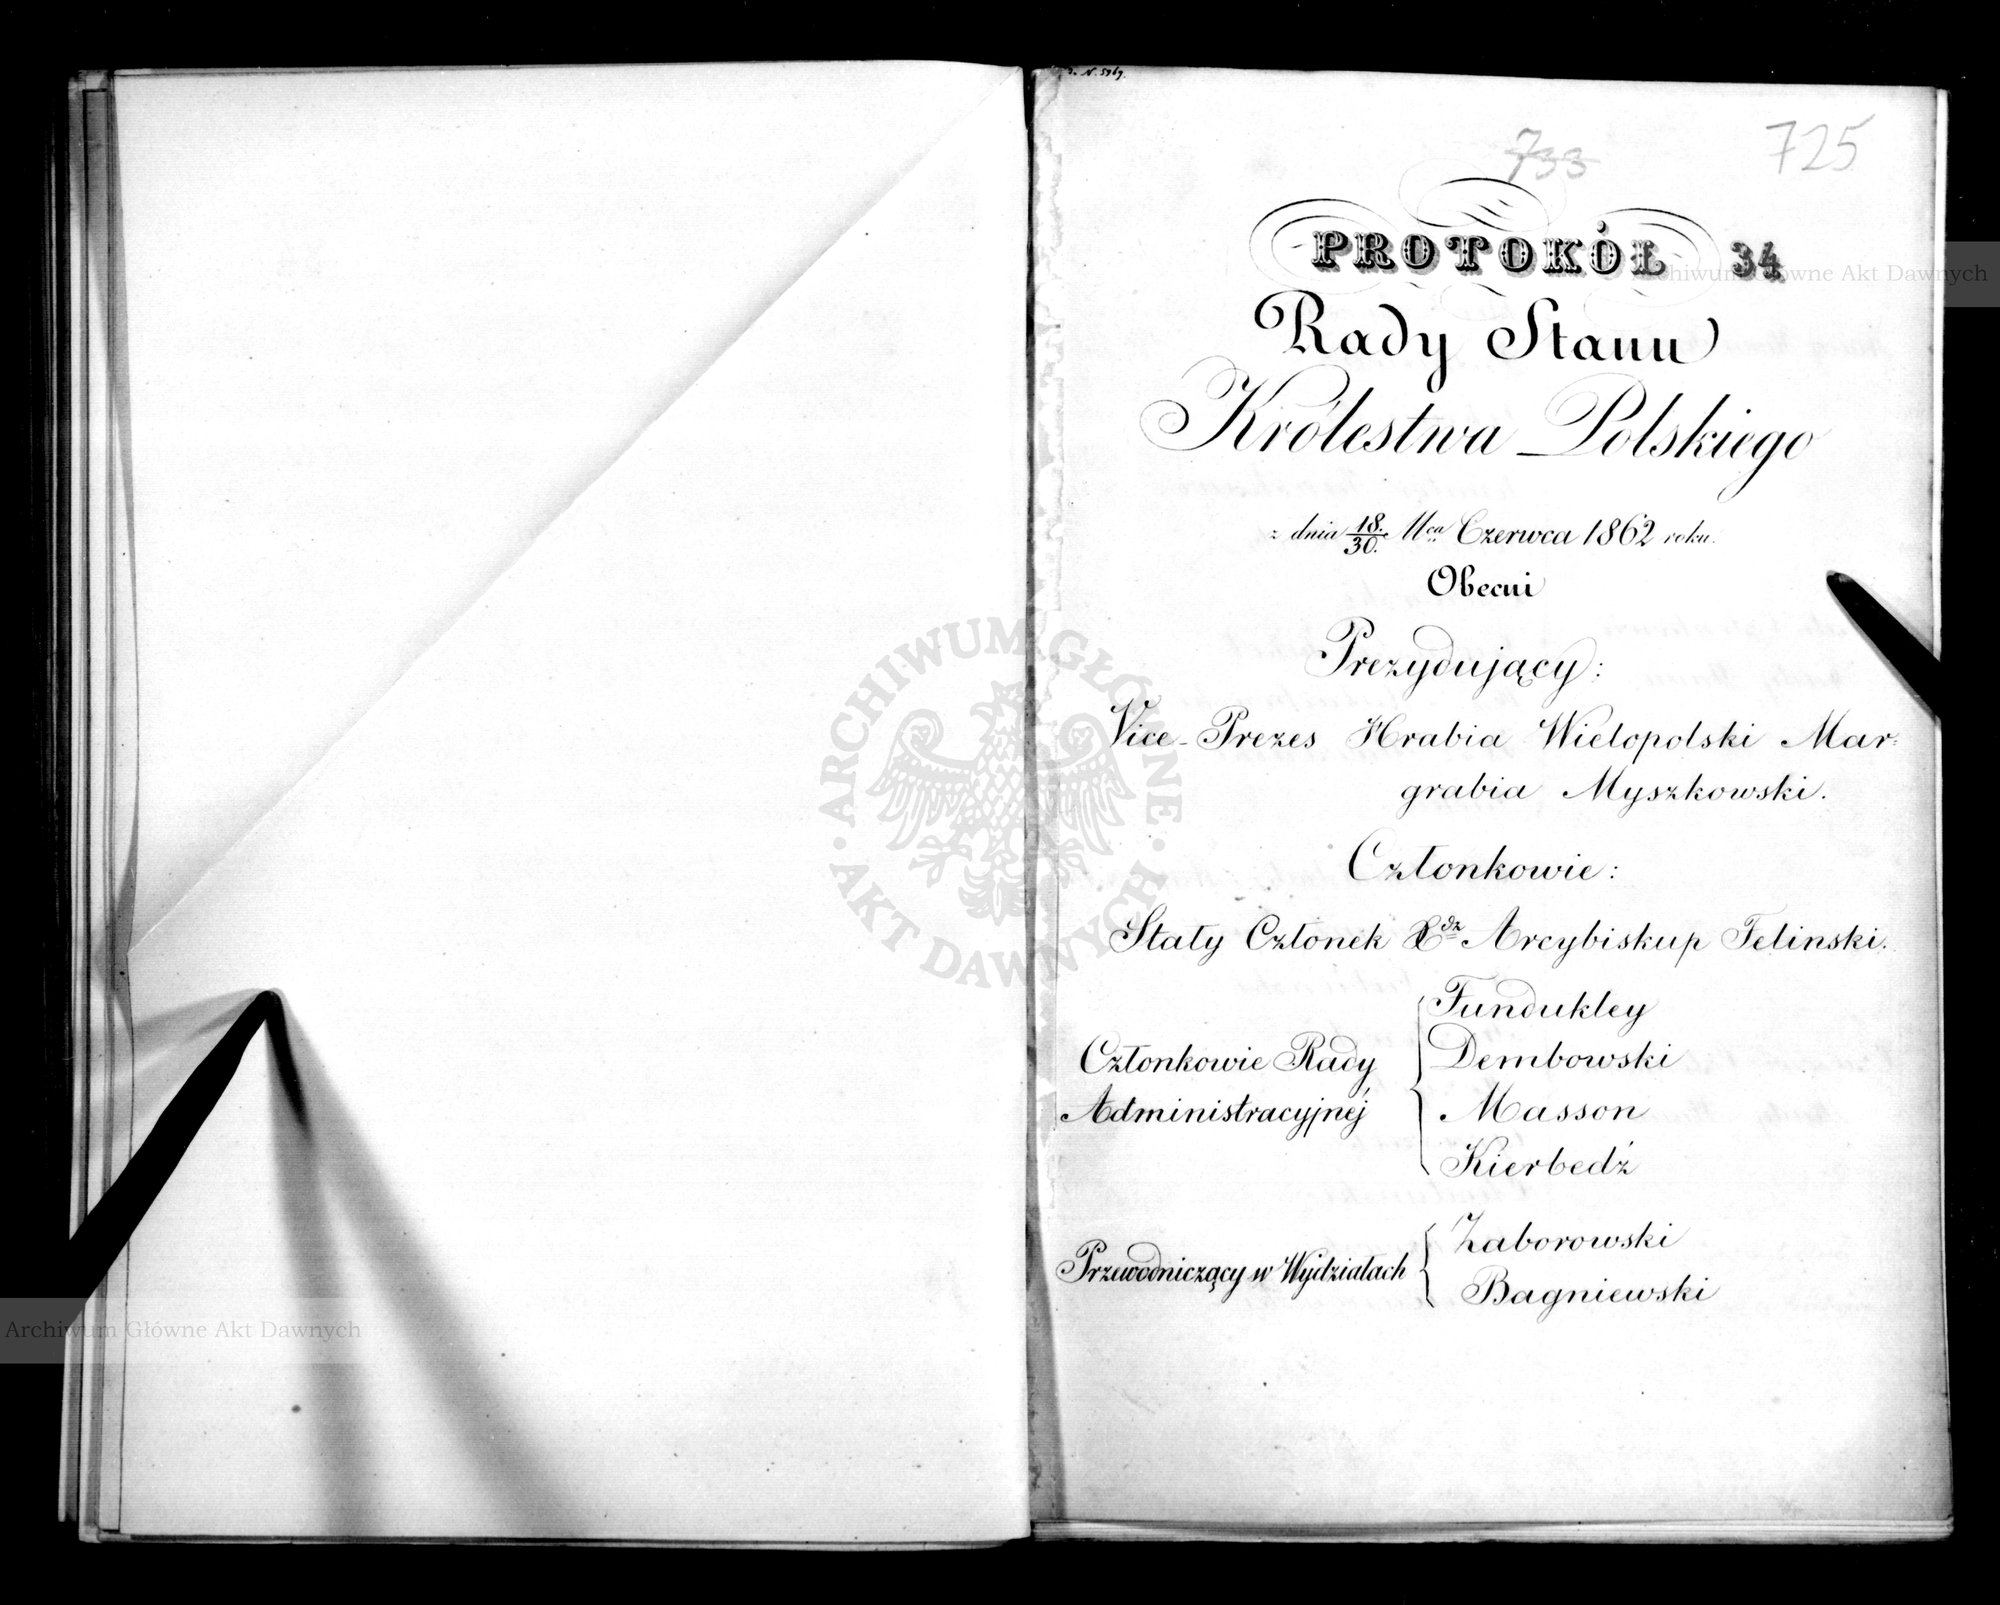 N. 5969.
733
725
PROTOKÓŁ 34
Rady Stanu
Królestwa Polskiego
z dnia 18./30. Mca Czerwca 1862 roku.
Obecni
Prezydujący:
Vice-Prezes Hrabia Wielopolski Mar=
grabia Myszkowski.
Członkowie:
Stały Członek Xdz Arcybiskup Felinski.
Członkowie Rady
Administracyjnéj
Fundukley
Dembowski
Masson
Kierbedź
Przewodniczący w Wydziałach
Zaborowski
Bagniewski
Archiwum Główne Akt Dawnych
Archiwum Główne Akt Dawnych
ARCHIWUM GŁÓWNE · AKT DAWNYCH ·